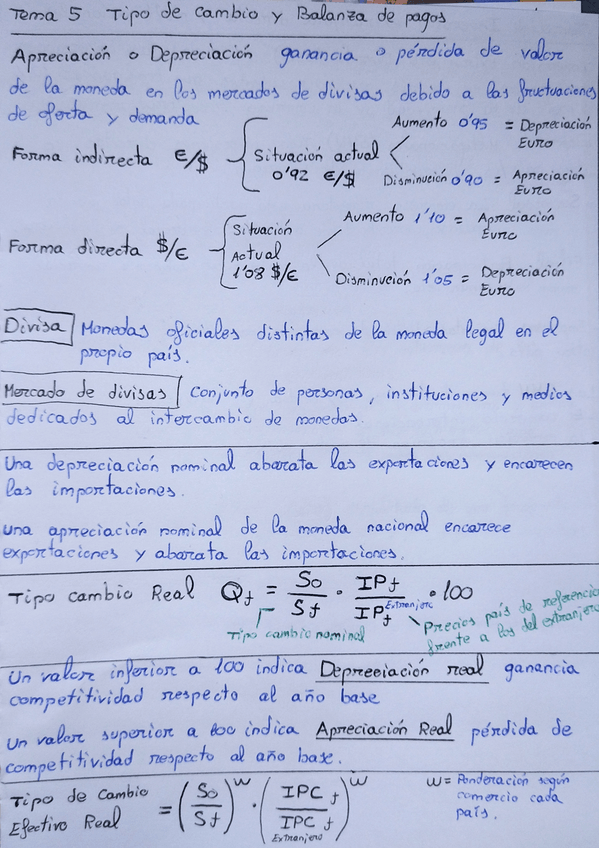 Tema 5 Tipo de Cambio y Balanza de pagos
Apreciación o Depreciación ganancia o pérdida de valor
de la moneda en los mercados de divisas debido a las fructuaciones
de oferta y demanda
Forma indirecta €/$
Situación actual
0'92 €/$
Aumento 0'95 = Depreciación
Euro
Disminución 0'90 = Apreciación
Euro
Forma directa $/€
Situación
Actual
1'08 $/€
Aumento 1'10 = Apreciación
Euro
Disminución 1'05 = Depreciación
Euro
Divisa Monedas oficiales distintas de la moneda legal en el
propio país.
Mercado de divisas conjunto de personas, instituciones y medios
dedicados al intercambio de monedas.
Una depreciación nominal abarata las exportaciones y encarecen
las importaciones.
una apreciación nominal de la moneda nacional encarece
exportaciones y abarata las importaciones.
Tipo cambio Real Qt = So/St · IPt/IPt Extranjero · 100
Tipo cambio nominal
Precios país de referencia
frente a los del extranjero
Un valor inferior a 100 indica Depreciación real ganancia
competitividad respecto al año base
Un valor superior a 100 indica Apreciación Real pérdida de
competitividad respecto al año base.
Tipo de Cambio
Efectivo Real = (So/St)^w · (IPC t/IPC t Extranjero)^w
w = Ponderación según
comercio cada
país.